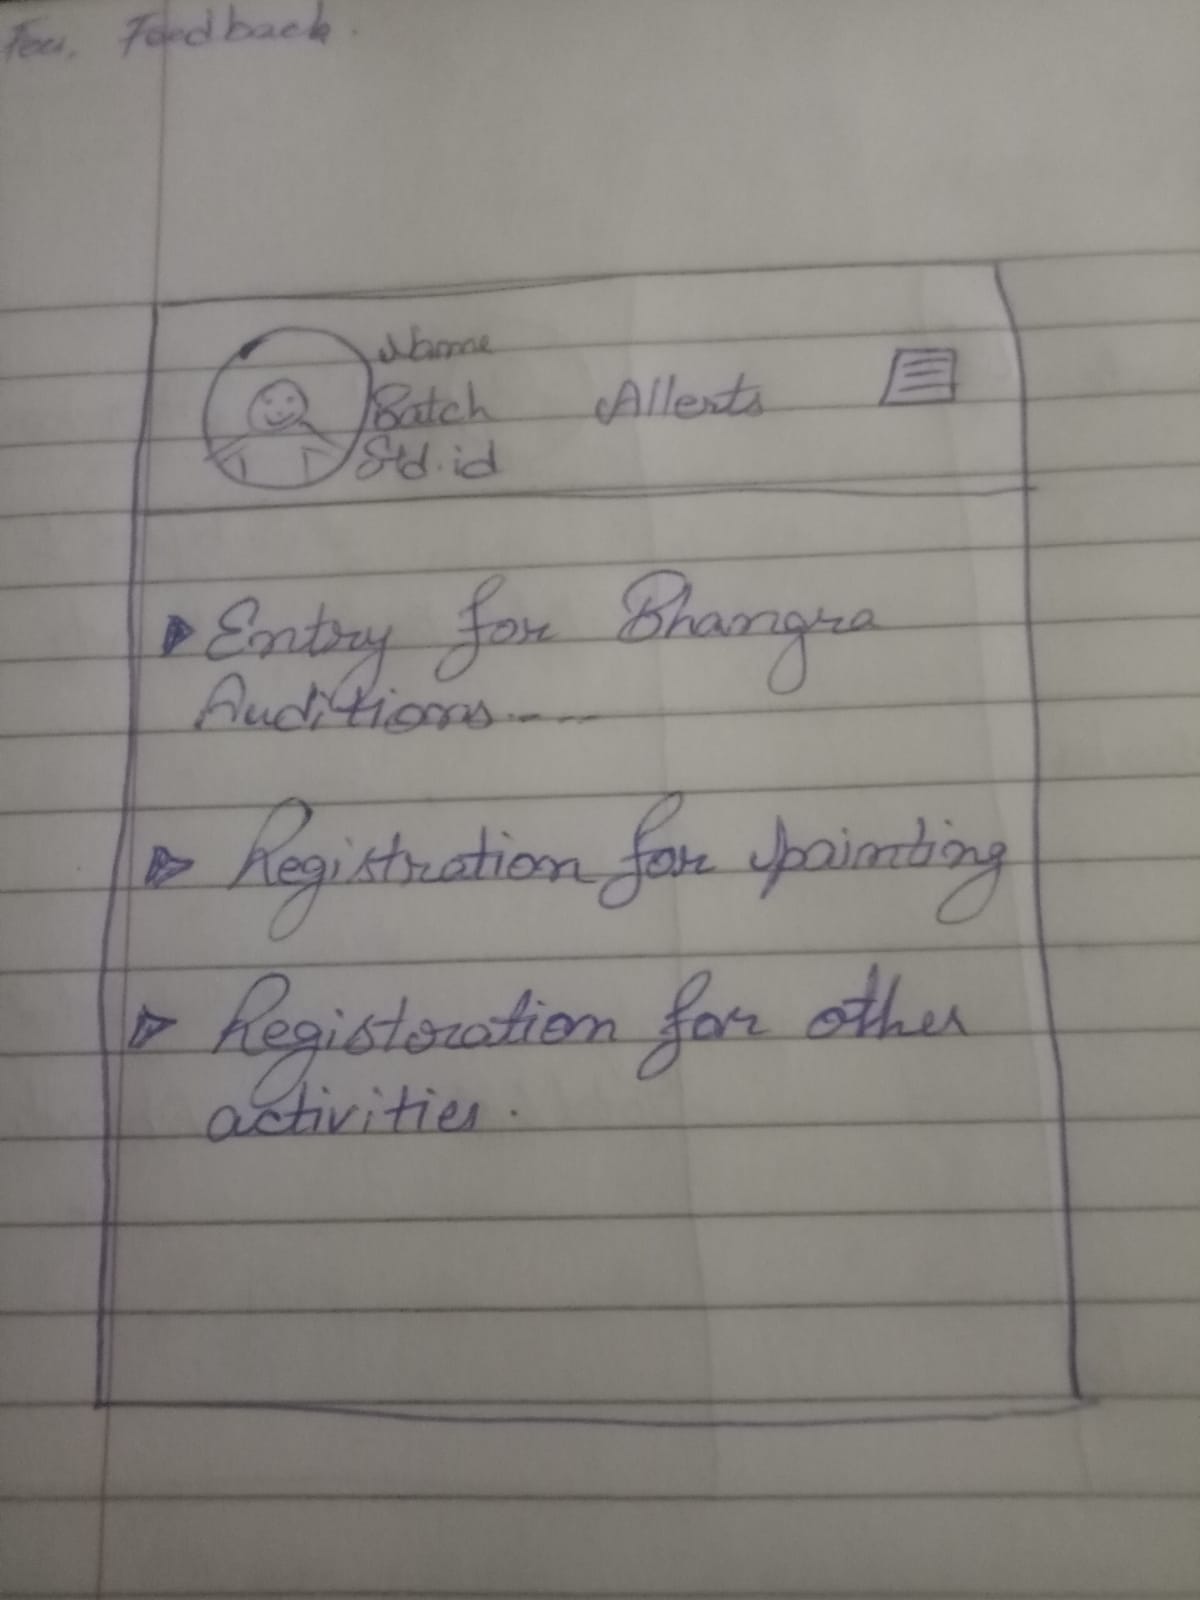 Fee. Feedback.
Name
Batch Allerts
Std.id
Entry for Bhangra
Auditions----
Registration for painting
Registoration for other
activities.